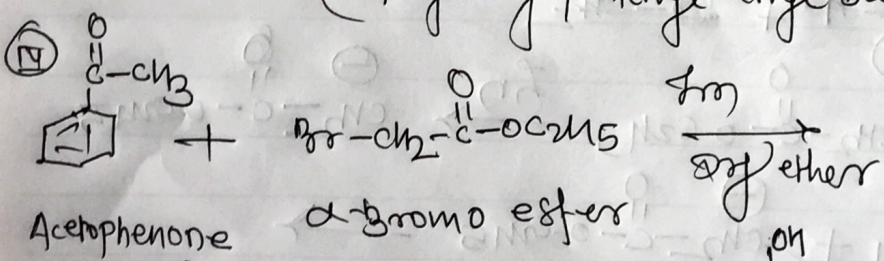 (IV)
O
C-CH3
+
Br-CH2-C-OC2H5
O
dry ether
Acetophenone
α-Bromo ester
OH